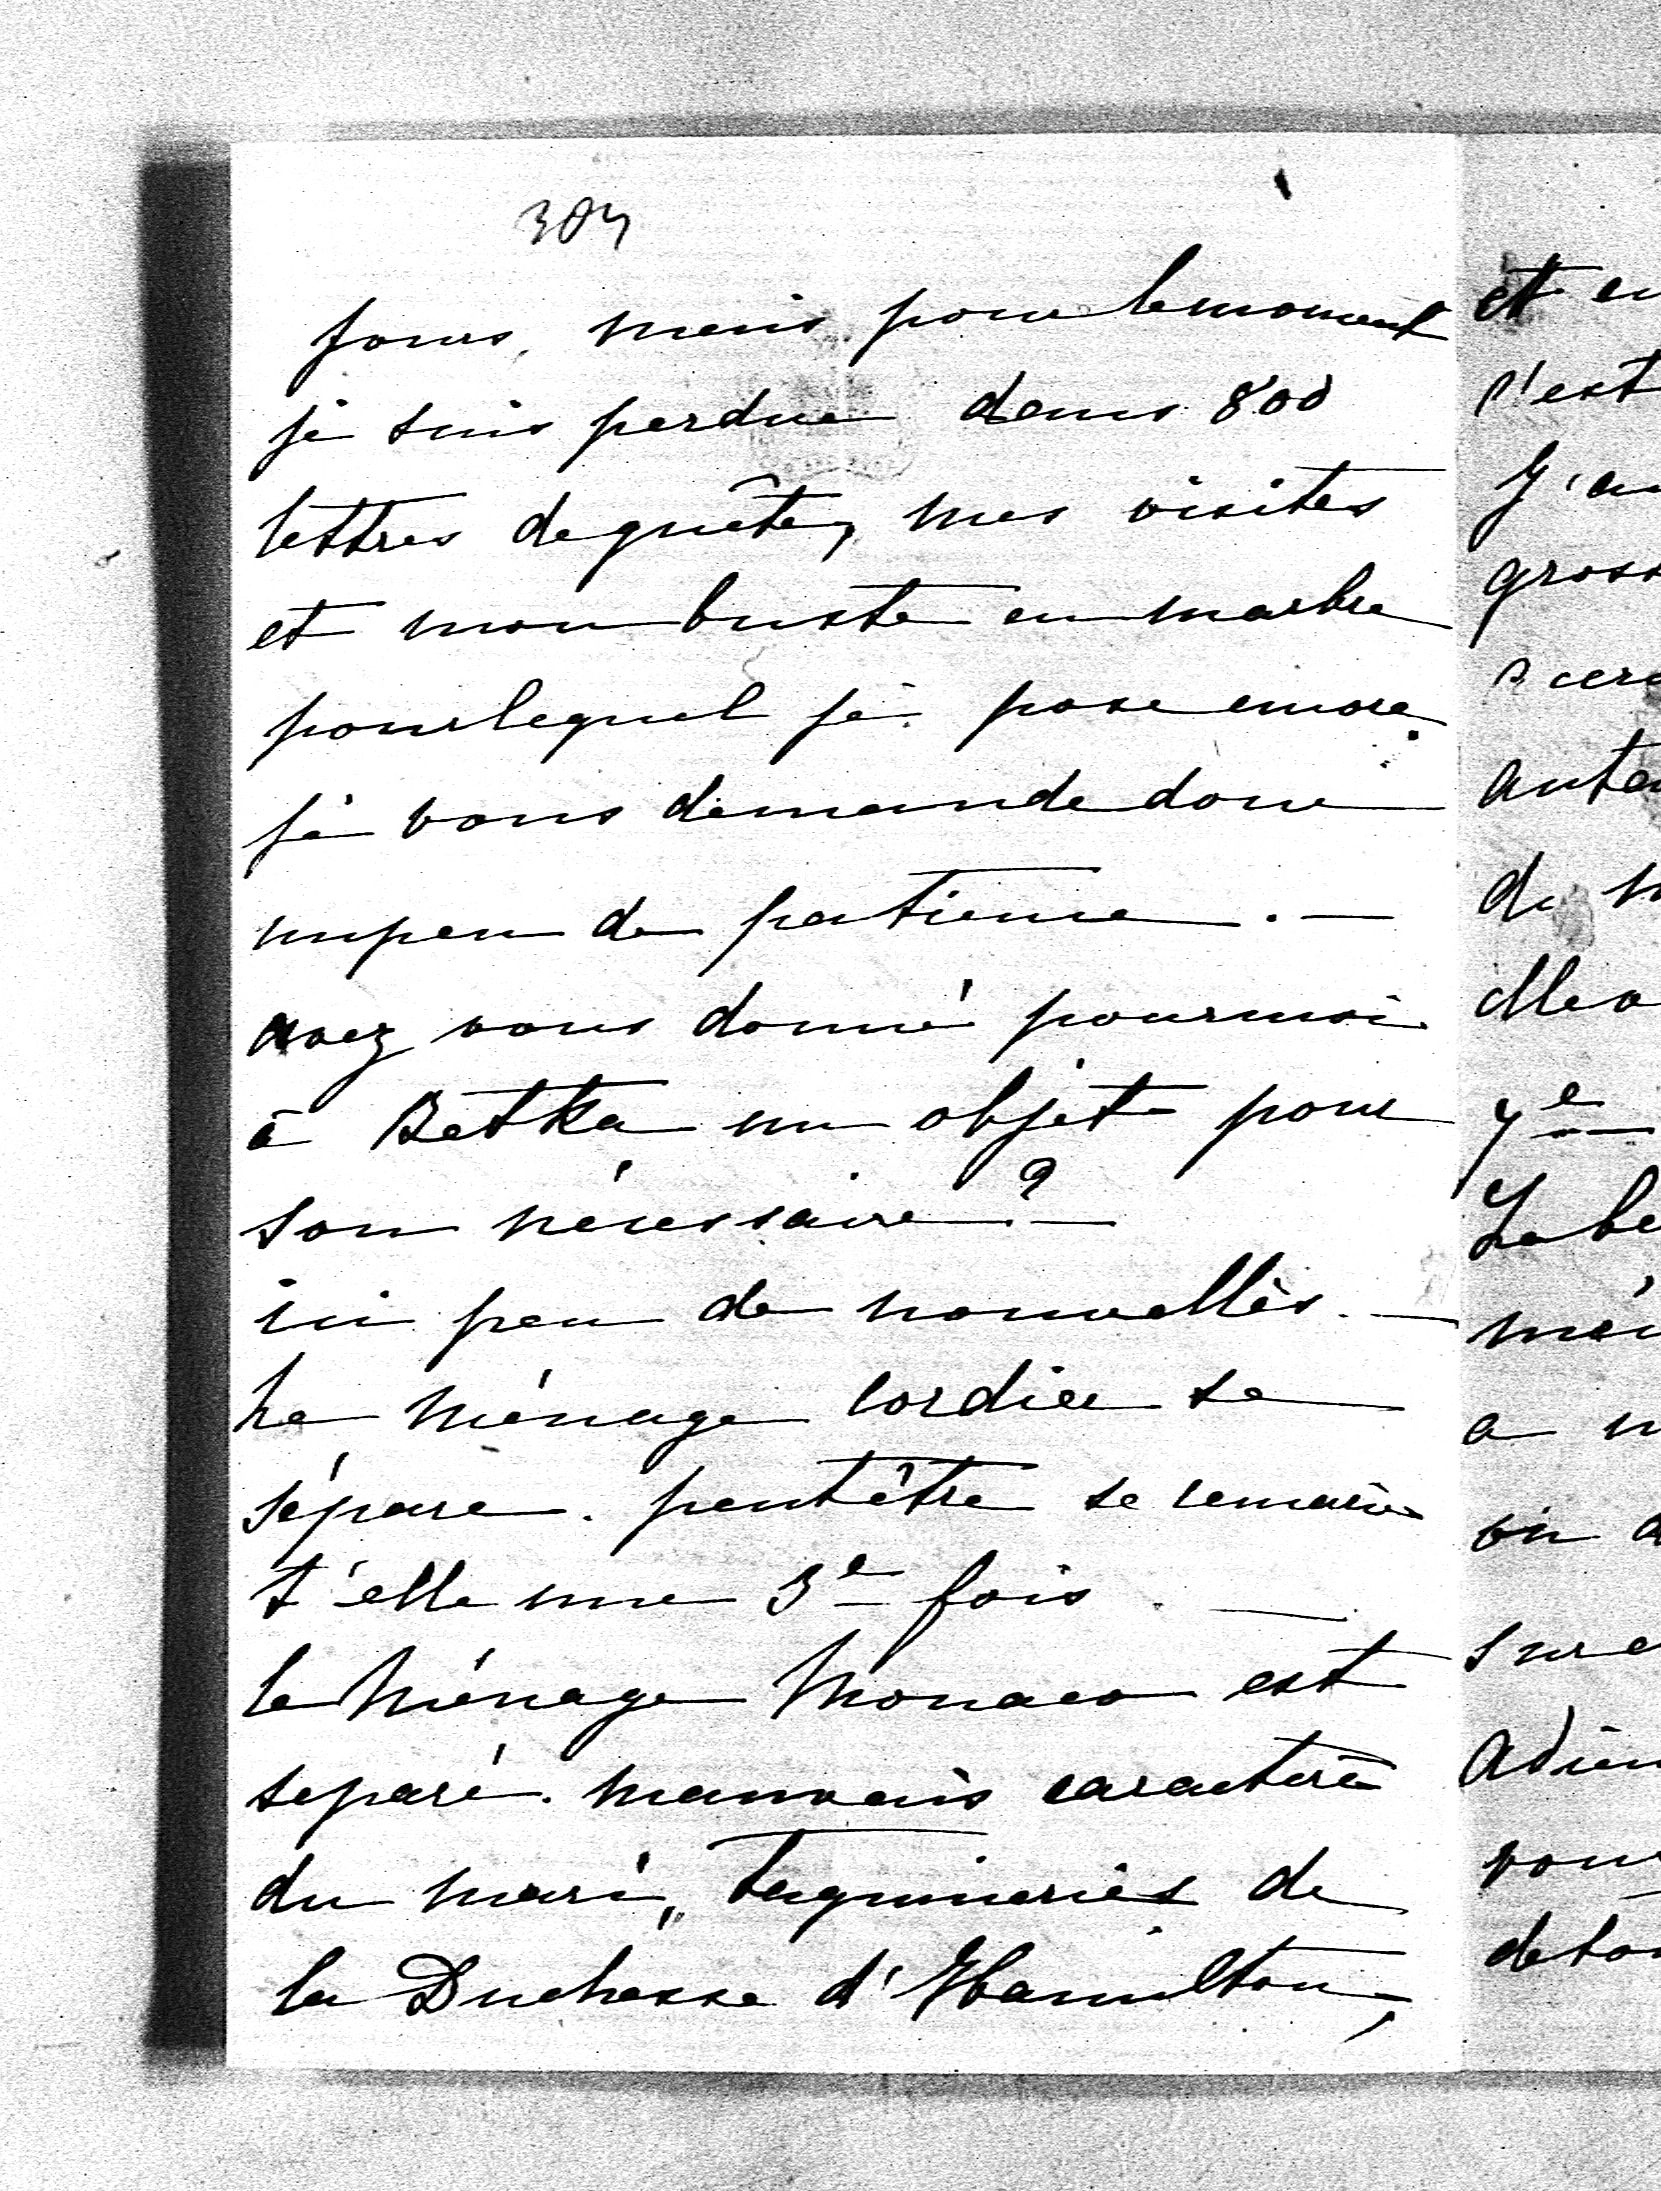 304
jours, mais pour le moment
je suis perdue dans 800
lettres de quête, mes visites
et mon buste en marbre
pour lequel je pose encore.
je vous demande donc
un peu de patience. —
avez vous donné pour moi
à Betka un objet pour
son nécessaire? —
ici peu de nouvelles. —
Le ménage Cordier se
sépare. peutêtre se remarie
t'elle une 3e fois. —
le Ménage Monaco est
separé. mauvais caractère
du mari, taquineries de
la Duchesse d'Hamilton,
et en
c'est
J'ai
gross
auteu
de m
7e
La be
a
on
adieu
vous